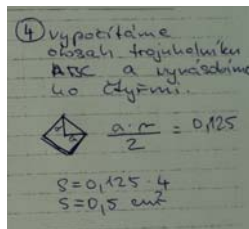 ④ vypočítáme
obsah trojúhelníku
ABC a vynásobíme
ho čtyřmi.
a · r / 2 = 0,125
S=0,125 · 4
S=0,5 cm²